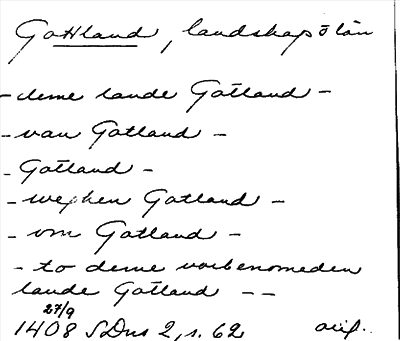 Gottland, landskap o län
- deme lande Gotland -
- van Gotland -
- Gotland -
- weghen Gotland -
- vm Gotland -
- to deme vorbenomeden
lande Gotland --
27/9
1408 SDns 2, s. 62 orig.